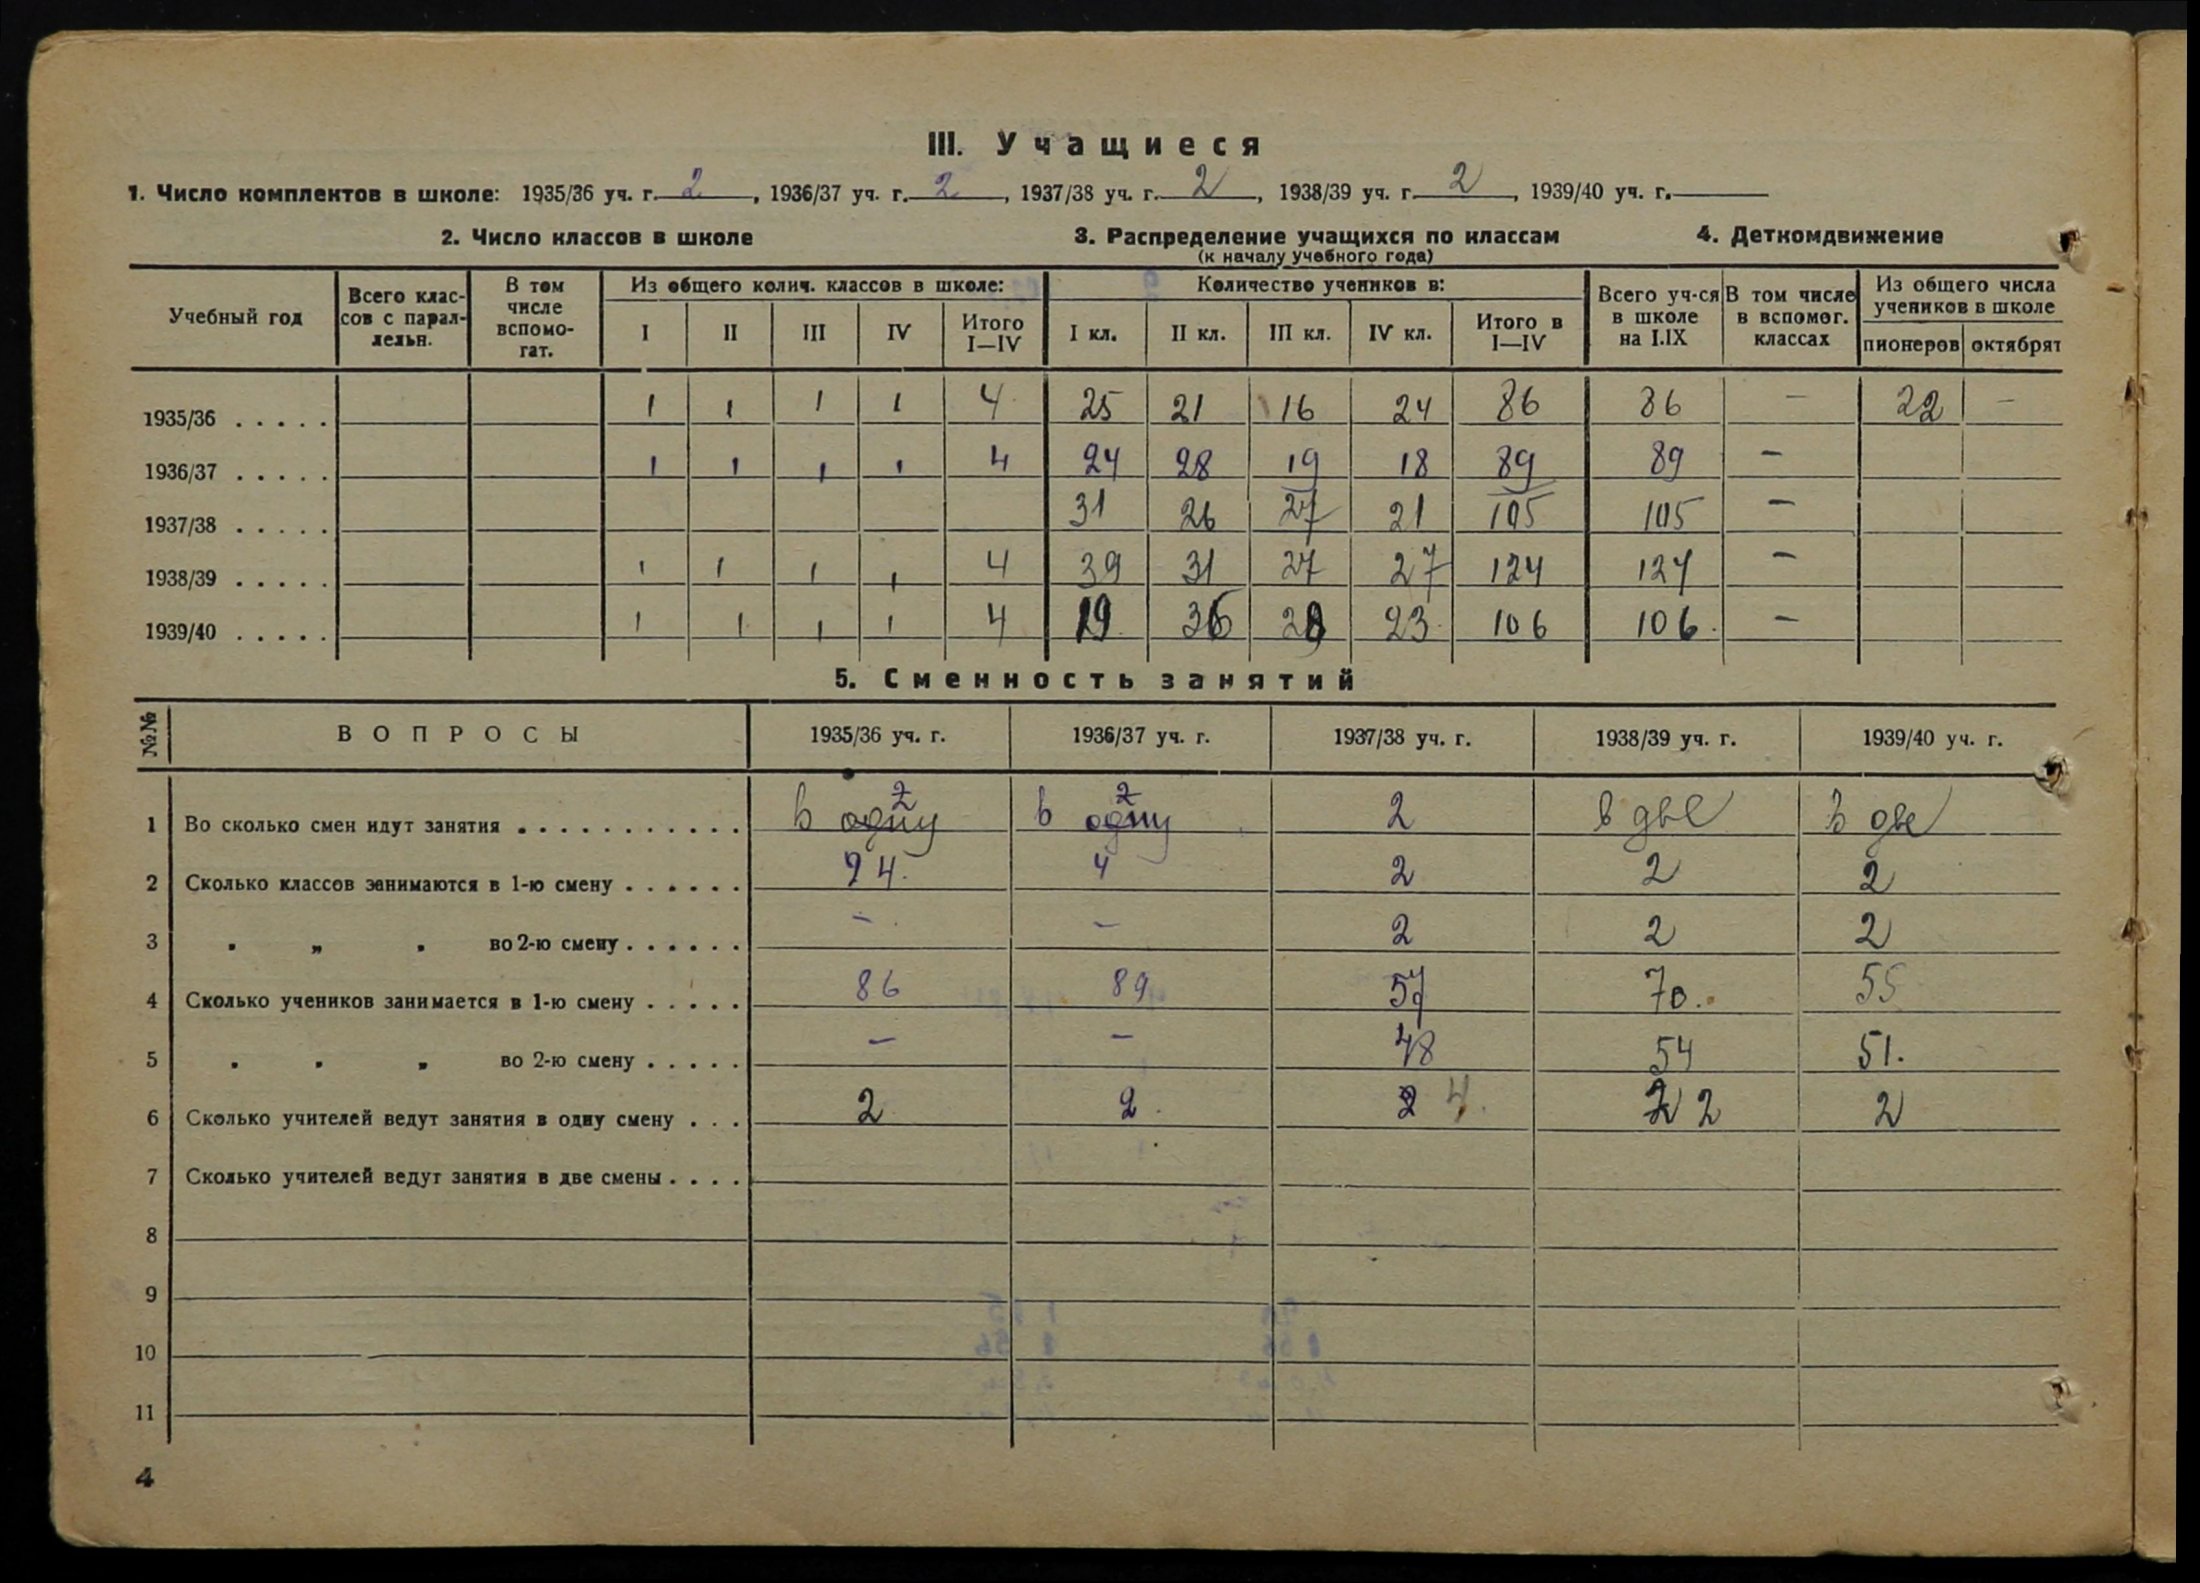 III. Учащиеся
1. Число комплектов в школе: 1935/36 уч. г. 2, 1936/37 уч. г. 2, 1937/38 уч. г. 2, 1938/39 уч. г. 2, 1939/40 уч. г.
2. Число классов в школе 3. Распределение учащихся по классам 4. Деткомдвижение
(к началу учебного года)
Учебный год Всего классов с параллельн. В том числе вспомогат. Из общего колич. классов в школе: Количество учеников в: Всего уч-ся в школе на I.IX В том числе в вспомог. классах Из общего числа учеников в школе
I II III IV Итого I—IV I кл. II кл. III кл. IV кл. Итого в I—IV пионеров октябрят
1935/36 . . . . . 1 1 1 1 4 25 21 16 24 86 86 — 22 —
1936/37 . . . . . 1 1 1 1 4 24 28 19 18 89 89 —
1937/38 . . . . . 31 26 27 21 105 105 —
1938/39 . . . . . 1 1 1 1 4 39 31 27 27 124 124 —
1939/40 . . . . . 1 1 1 1 4 19 36 28 23 106 106. —
5. Сменность занятий
№№ ВОПРОСЫ 1935/36 уч. г. 1936/37 уч. г. 1937/38 уч. г. 1938/39 уч. г. 1939/40 уч. г.
1 Во сколько смен идут занятия . . . . . . . . . . . в одну 2 в одну 2 2 в две в две
2 Сколько классов занимаются в 1-ю смену . . . . . . 4. 4 2 2 2
3 " „ " во 2-ю смену . . . . . . – – 2 2 2
4 Сколько учеников занимается в 1-ю смену . . . . . 86 89 57 70. 55
5 " " „ во 2-ю смену . . . . . – – 48 54 51.
6 Сколько учителей ведут занятия в одну смену . . . 2 2. 2 4. 2 2 2
7 Сколько учителей ведут занятия в две смены . . . .
8
9
10
11
4